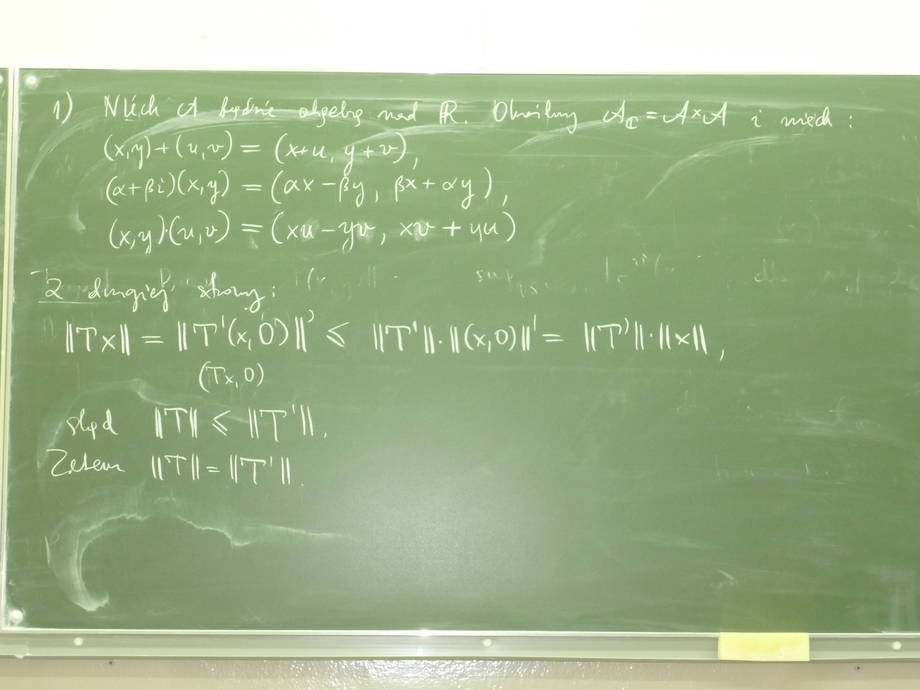 1) Niech A będzie algebrą nad ℝ. Określmy A_ℂ = A×A i niech:
(x,y)+(u,v) = (x+u, y+v),
(α+βi)(x,y) = (αx−βy, βx+αy),
(x,y)·(u,v) = (xu−yv, xv+yu)
Z drugiej strony:
‖Tx‖ = ‖T'(x,0)‖' ≤ ‖T'‖·‖(x,0)‖' = ‖T'‖·‖x‖,
(Tx,0)
skąd ‖T‖ ≤ ‖T'‖.
Zatem ‖T‖ = ‖T'‖.